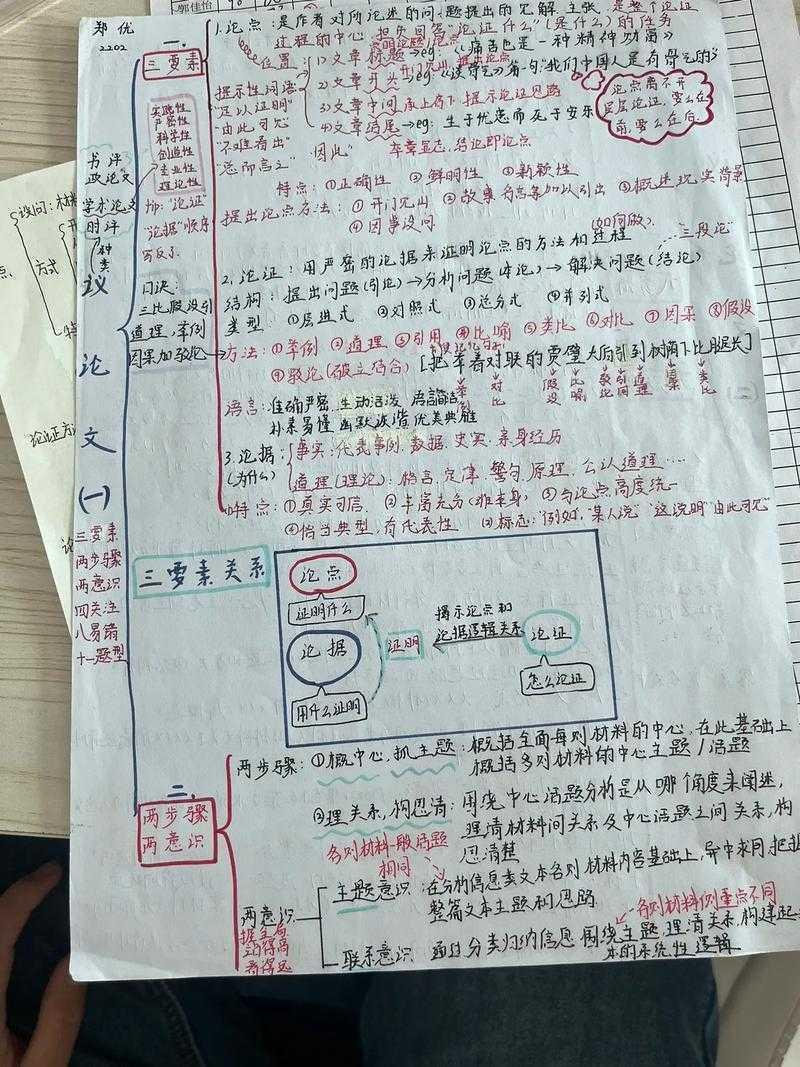 郑优
2202
一.
三要素
实践性
严密性
科学性
创造性
专业性
理论性
书评
政论文
学术论文
时评
种类
议论文(一)
三要素
两步骤
两意识
四关注
八易错
十一题型
tip:"论证"
"论据"顺序
写反了
口诀:
三比假设引
道理,举例
因果加驳论
1.论点:是作者对所论述的问题提出的见解 主张 是整个论证
过程的中心 担负回答"论证什么"(是什么)的任务
位置:
1)文章标题→eg:《痛苦也是一种精神财富》
2)文章开头 提出论点
eg《谈骨气》首句"我们中国人是有骨气的"
3)文章中间 承上启下 提示论证思路
4)文章结尾→eg:生于忧患而死于安乐
卒章显志,结论即论点
论点离不开
层层论证,要么在
前,要么在后
提示性词语
"足以证明"
"由此可见"
"不难看出"
"总而言之" "因此"
特点:①正确性 ②鲜明性 ③新颖性
提出论点方法:①开门见山 ②故事 名言等加以引出 ③概述现实背景
④因事设问
(如何做).
2.论证:用严密的论据来证明论点的方法和过程
"三段论"
结构:提出问题(引论)→分析问题(本论)→解决问题(结论)
类型:①层进式 ②对照式 ③总分式 ④并列式
方法:①举例 ②道理 ③引用 ④比喻 ⑤类比 ⑥对比 ⑦因果 ⑧假设
⑨驳论(破立结合)
[把举着对联的贾璧大后引到树荫下比腿长]
语言:准确严密 生动活泼 语言简洁
朴素易懂 幽默诙谐 优美典雅
3.论据:
(为什么)
事实:代表事例.数据.史实.亲身经历
道理(理论):格言.定律.警句.原理.公认道理....
特点:①真实可信 ②丰富充分 ③与论点高度统一
④恰当典型,有代表性 (2)标志:"例如,"某人说""这说明""由此可见"
三要素关系
论点
证明什么
论据
用什么证明
证明
揭示论点和
论据逻辑关系
论证
怎么论证
二.
两步骤
两意识
两步骤:①概中心,抓主题:概括全面每则材料的中心,在此基础上
概括多则材料的中心主题/话题
②理关系,构思清:用绕中心话题分析是从哪个角度来阐述,
理清材料间关系及中心话题之间关系,构
思清楚
各则材料一般话题
相同
两意识
主题意识:在分析信息类文本各则材料内容基础上,异中求同,把握
整篇文本主题和思路
各则材料侧重点不同
联系意识:通过分类归纳信息,围绕主题,理清关系,构建起
本的系统性逻辑
站得高
看得远
设问:
方式
论证方
郭佳怡